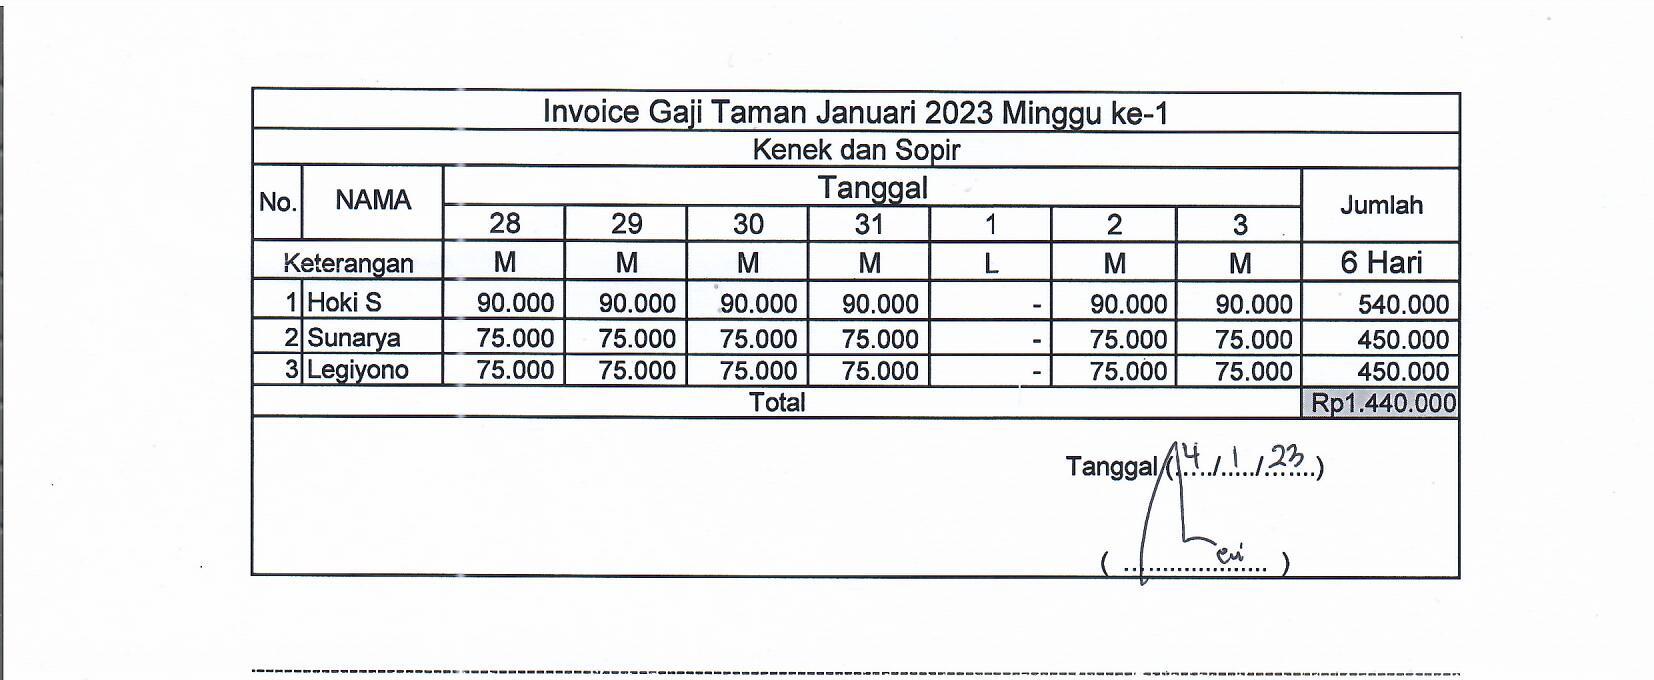 Invoice Gaji Taman Januari 2023 Minggu ke-1
Kenek dan Sopir
No. NAMA Tanggal Jumlah
28 29 30 31 1 2 3
Keterangan M M M M L M M 6 Hari
1 Hoki S 90.000 90.000 90.000 90.000 - 90.000 90.000 540.000
2 Sunarya 75.000 75.000 75.000 75.000 - 75.000 75.000 450.000
3 Legiyono 75.000 75.000 75.000 75.000 - 75.000 75.000 450.000
Total Rp1.440.000
Tanggal (4/1/23)